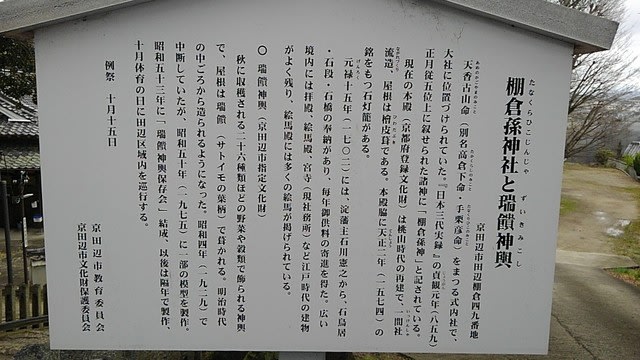 棚倉孫神社と瑞饋神輿
たなくらひこじんじゃ　ずいきみこし
京田辺市田辺棚倉四九番地
天香古山命（別名高倉下命・手栗彦命）をまつる式内社で、
大社に位置づけられていた。『日本三代実録』の貞観元年（八五九）
正月従五位上に叙せられた諸神に「棚倉孫神」と記されている。
現在の本殿（京都府登録文化財）は桃山時代の再建で、一間社
流造、屋根は檜皮葺である。本殿脇に天正二年（一五七四）の
銘をもつ石灯籠がある。
元禄十五年（一七〇二）には、淀藩主石川憲之から、石鳥居
・石段・石橋の奉納があり、毎年御供料の寄進を得た。広い
境内には拝殿、絵馬殿、宮寺（現社務所）など江戸時代の建物
がよく残り、絵馬殿には多くの絵馬が掲げられている。
〇　瑞饋神輿（京田辺市指定文化財）
秋に収穫される二十六種類ほどの野菜や穀類で飾られる神輿
で、屋根は瑞饋（サトイモの葉柄）で葺かれる。明治時代
の中ごろから造られるようになった。昭和四年（一九二九）で
中断していたが、昭和五十年（一九七五）に一部の模型を製作。
昭和五十三年に「瑞饋神輿保存会」結成、以後は隔年で製作、
十月体育の日に田辺区域内を巡行する。
例祭　十月十五日
京田辺市教育委員会
京田辺市文化財保護委員会